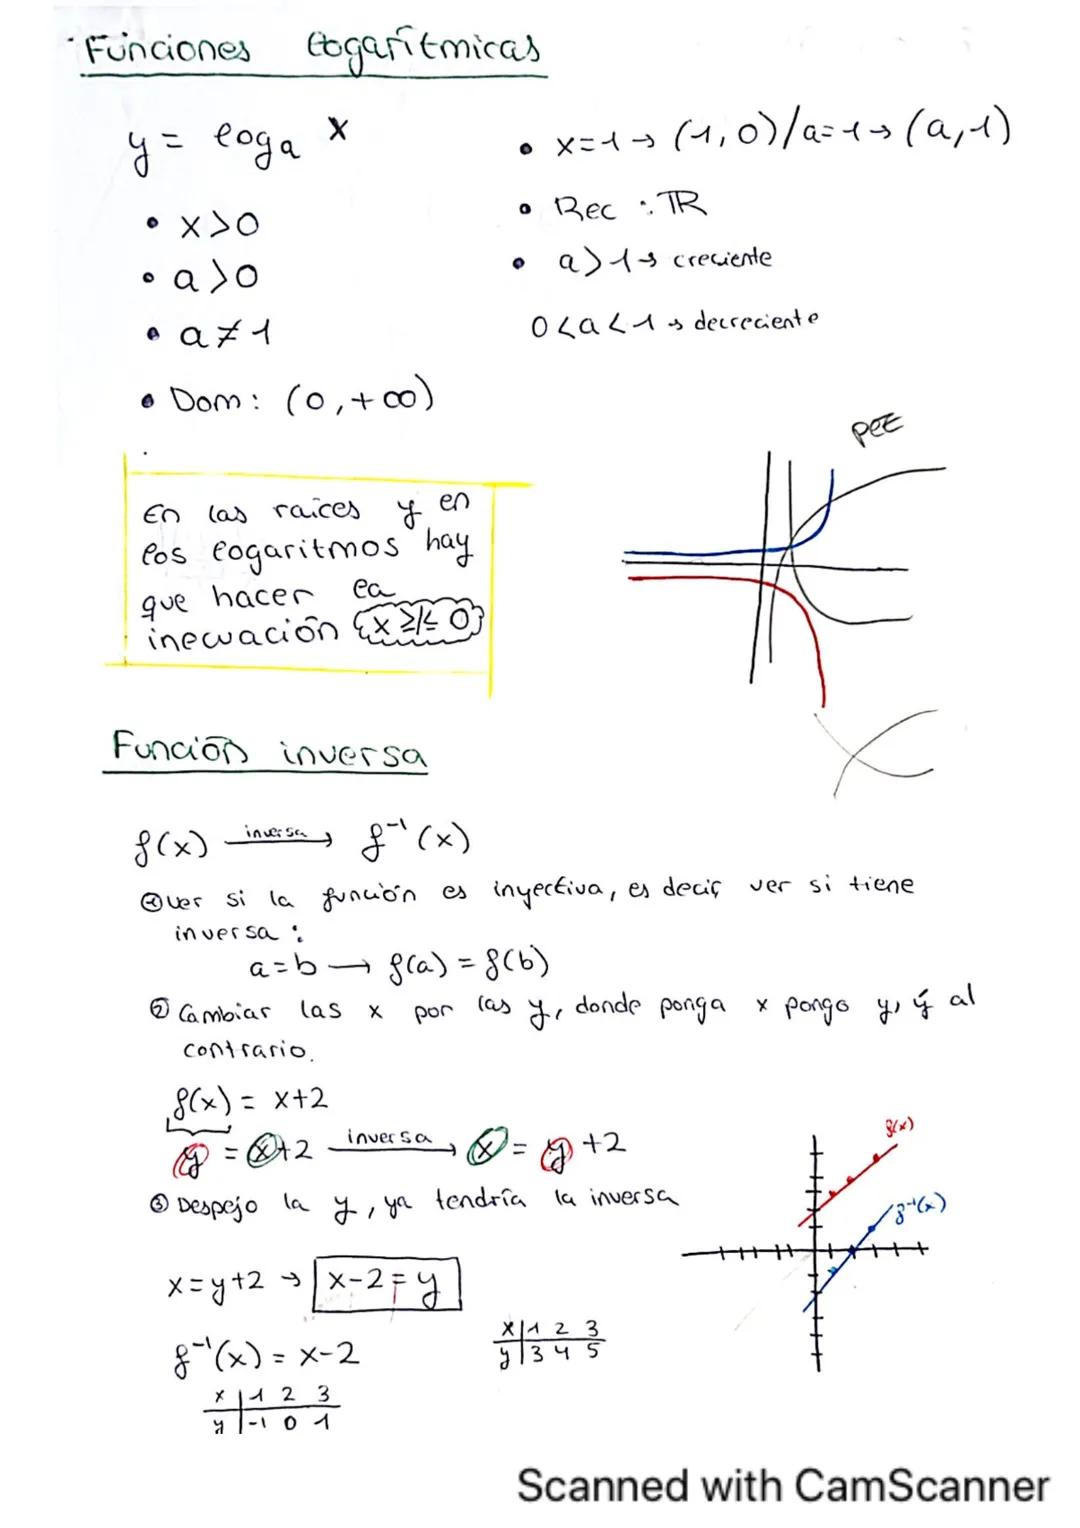 Funciones Logarítmicas
y = log_a x
• x>0
• a>0
• a≠1
• Dom: (0,+∞)
• x=1→ (1,0)/a=1→ (a,1)
• Rec : ℝ
• a>1→ creciente
0<a<1→ decreciente
En las raíces y en
los logaritmos hay
que hacer la
inecuación {x ≥/≤ 0}
Función inversa
f(x) inversa→ f⁻¹(x)
① Ver si la función es inyectiva, es decir, ver si tiene
inversa:
a=b → f(a) = f(b)
② Cambiar las x por las y, donde ponga x pongo y, y al
contrario.
f(x) = x+2
y = x+2 inversa→ x = y+2
③ Despejo la y, ya tendría la inversa
x=y+2 → x-2=y
f⁻¹(x) = x-2
x | 1 2 3
y | -1 0 1
x | 1 2 3
y | 3 4 5
f(x)
f⁻¹(x)
Scanned with CamScanner